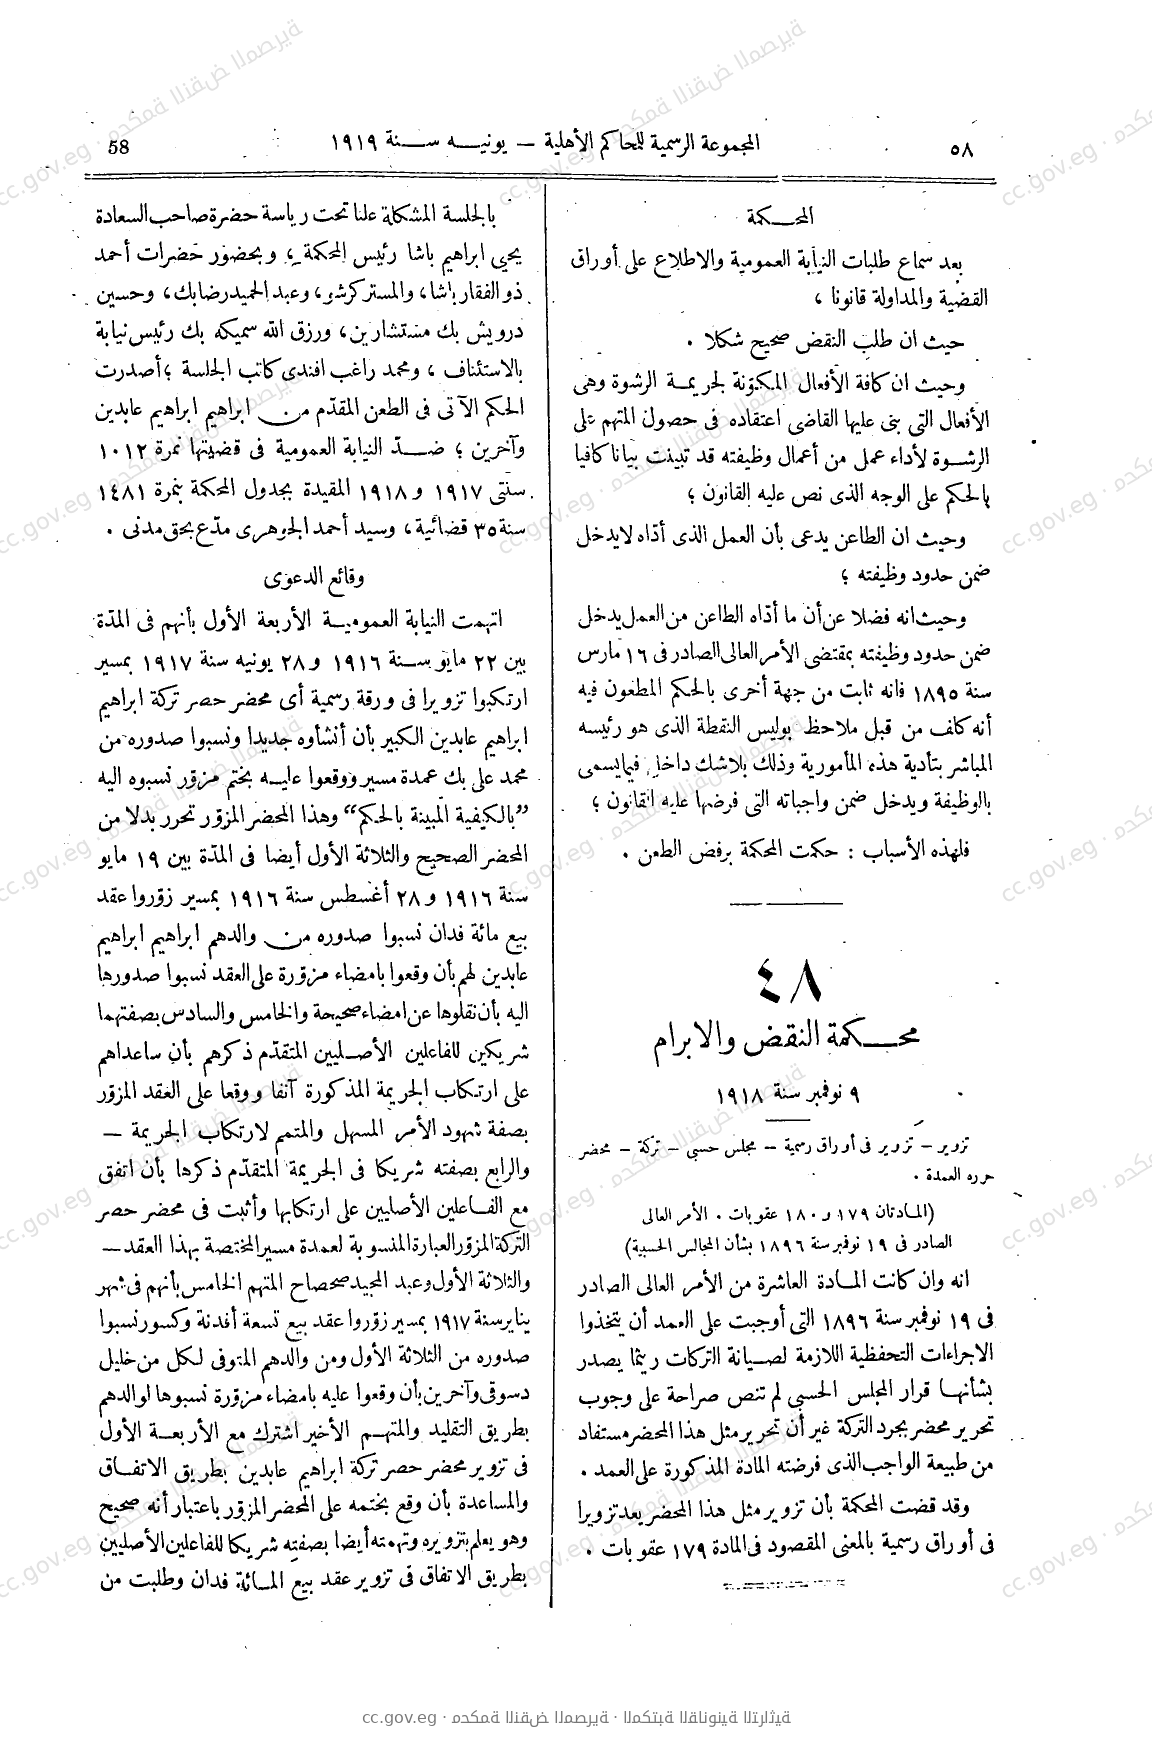 ٥٨
المجموعة الرسمية للمحاكم الأهلية — يونيه سنة ١٩١٩
58
المحكمة
بعد سماع طلبات النيابة العمومية والاطلاع على أوراق
القضية والمداولة قانونا ،
حيث ان طلب النقض صحيح شكلا .
وحيث ان كافة الأفعال المكوّنة لجريمة الرشوة وهى
الأفعال التى بنى عليها القاضى اعتقاده فى حصول المتهم على
الرشوة لأداء عمل من أعمال وظيفته قد تبينت بيانا كافيا
بالحكم على الوجه الذى نص عليه القانون ؛
وحيث ان الطاعن يدعى بأن العمل الذى أدّاه لا يدخل
ضمن حدود وظيفته ؛
وحيث انه فضلا عن أن ما أدّاه الطاعن من العمل يدخل
ضمن حدود وظيفته بمقتضى الأمر العالى الصادر فى ١٦ مارس
سنة ١٨٩٥ فانه ثابت من جهة أخرى بالحكم المطعون فيه
أنه كلف من قبل ملاحظ بوليس النقطة الذى هو رئيسه
المباشر بتأدية هذه المأمورية وذلك بلا شك داخل فيما يسمى
بالوظيفة ويدخل ضمن واجباته التى فرضها عليه القانون ؛
فلهذه الأسباب : حكمت المحكمة برفض الطعن .
٤٨
محكمة النقض والابرام
٩ نوفمبر سنة ١٩١٨
تزوير — تزوير فى أوراق رسمية — مجلس حسبي — تركة — محضر
حرره العمدة .
(المادتان ١٧٩ و ١٨٠ عقوبات . الأمر العالى
الصادر فى ١٩ نوفمبر سنة ١٨٩٦ بشأن المجالس الحسبية)
انه وان كانت المادة العاشرة من الأمر العالى الصادر
فى ١٩ نوفمبر سنة ١٨٩٦ التى أوجبت على العمد أن يتخذوا
الاجراءات التحفظية اللازمة لصيانة التركات ريثما يصدر
بشأنها قرار المجلس الحسبي لم تنص صراحة على وجوب
تحرير محضر بجرد التركة غير أن تحرير مثل هذا المحضر مستفاد
من طبيعة الواجب الذى فرضته المادة المذكورة على العمد .
وقد قضت المحكمة بأن تزوير مثل هذا المحضر يعد تزويرا
فى أوراق رسمية بالمعنى المقصود فى المادة ١٧٩ عقوبات .
بالجلسة المشكلة علنا تحت رياسة حضرة صاحب السعادة
يحيى ابراهيم باشا رئيس المحكمة ؛ وبحضور حضرات أحمد
ذو الفقار باشا، والمستر كرشو، وعبد الحميد رضا بك، وحسين
درويش بك مستشارين، ورزق الله سميكه بك رئيس نيابة
بالاستئناف ، ومحمد راغب افندى كاتب الجلسة ؛ أصدرت
الحكم الآتى فى الطعن المقدّم من ابراهيم ابراهيم عابدين
وآخرين ؛ ضدّ النيابة العمومية فى قضيتها نمرة ١٠١٢
سنتى ١٩١٧ و ١٩١٨ المقيدة بجدول المحكمة بنمرة ١٤٨١
سنة ٣٥ قضائية، وسيد أحمد الجوهرى مدّع بحق مدنى .
وقائع الدعوى
اتهمت النيابة العمومية الأربعة الأول بأنهم فى المدّة
بين ٢٢ مايو سنة ١٩١٦ و ٢٨ يونيه سنة ١٩١٧ بمسير
ارتكبوا تزويرا فى ورقة رسمية أى محضر حصر تركة ابراهيم
ابراهيم عابدين الكبير بأن أنشأوه جديدا ونسبوا صدوره من
محمد على بك عمدة مسير ووقعوا عليه بختم مزوّر نسبوه اليه
”بالكيفية المبينة بالحكم“ وهذا المحضر المزوّر تحرر بدلا من
المحضر الصحيح والثلاثة الأول أيضا فى المدّة بين ١٩ مايو
سنة ١٩١٦ و ٢٨ أغسطس سنة ١٩١٦ بمسير زوّروا عقد
بيع مائة فدان نسبوا صدوره من والدهم ابراهيم ابراهيم
عابدين لهم بأن وقعوا بامضاء مزوّرة على العقد نسبوا صدورها
اليه بأن نقلوها عن امضاء صحيحة والخامس والسادس بصفتهما
شريكين للفاعلين الأصليين المتقدّم ذكرهم بأن ساعداهم
على ارتكاب الجريمة المذكورة آنفا ووقعا على العقد المزوّر
بصفة شهود الأمر المسهل والمتمم لارتكاب الجريمة —
والرابع بصفته شريكا فى الجريمة المتقدّم ذكرها بأن اتفق
مع الفاعلين الأصليين على ارتكابها وأثبت فى محضر حصر
التركة المزوّر العبارة المنسوبة لعمدة مسير المختصة بهذا العقد —
والثلاثة الأول وعبد المجيد صحصاح المتهم الخامس بأنهم فى شهر
يناير سنة ١٩١٧ بمسير زوّروا عقد بيع تسعة أفدنة وكسور نسبوا
صدوره من الثلاثة الأول ومن والدهم المتوفى لكل من خليل
دسوقى وآخرين بأن وقعوا عليه بامضاء مزوّرة نسبوها لوالدهم
بطريق التقليد والمتهم الأخير اشترك مع الأربعة الأول
فى تزوير محضر حصر تركة ابراهيم عابدين بطريق الاتفاق
والمساعدة بأن وقع بختمه على المحضر المزوّر باعتبار أنه صحيح
وهو يعلم بتزويره وتهمته أيضا بصفته شريكا للفاعلين الأصليين
بطريق الاتفاق فى تزوير عقد بيع المائة فدان وطلبت من
cc.gov.eg · محكمة النقض المصرية · المكتبة القانونية التراثية